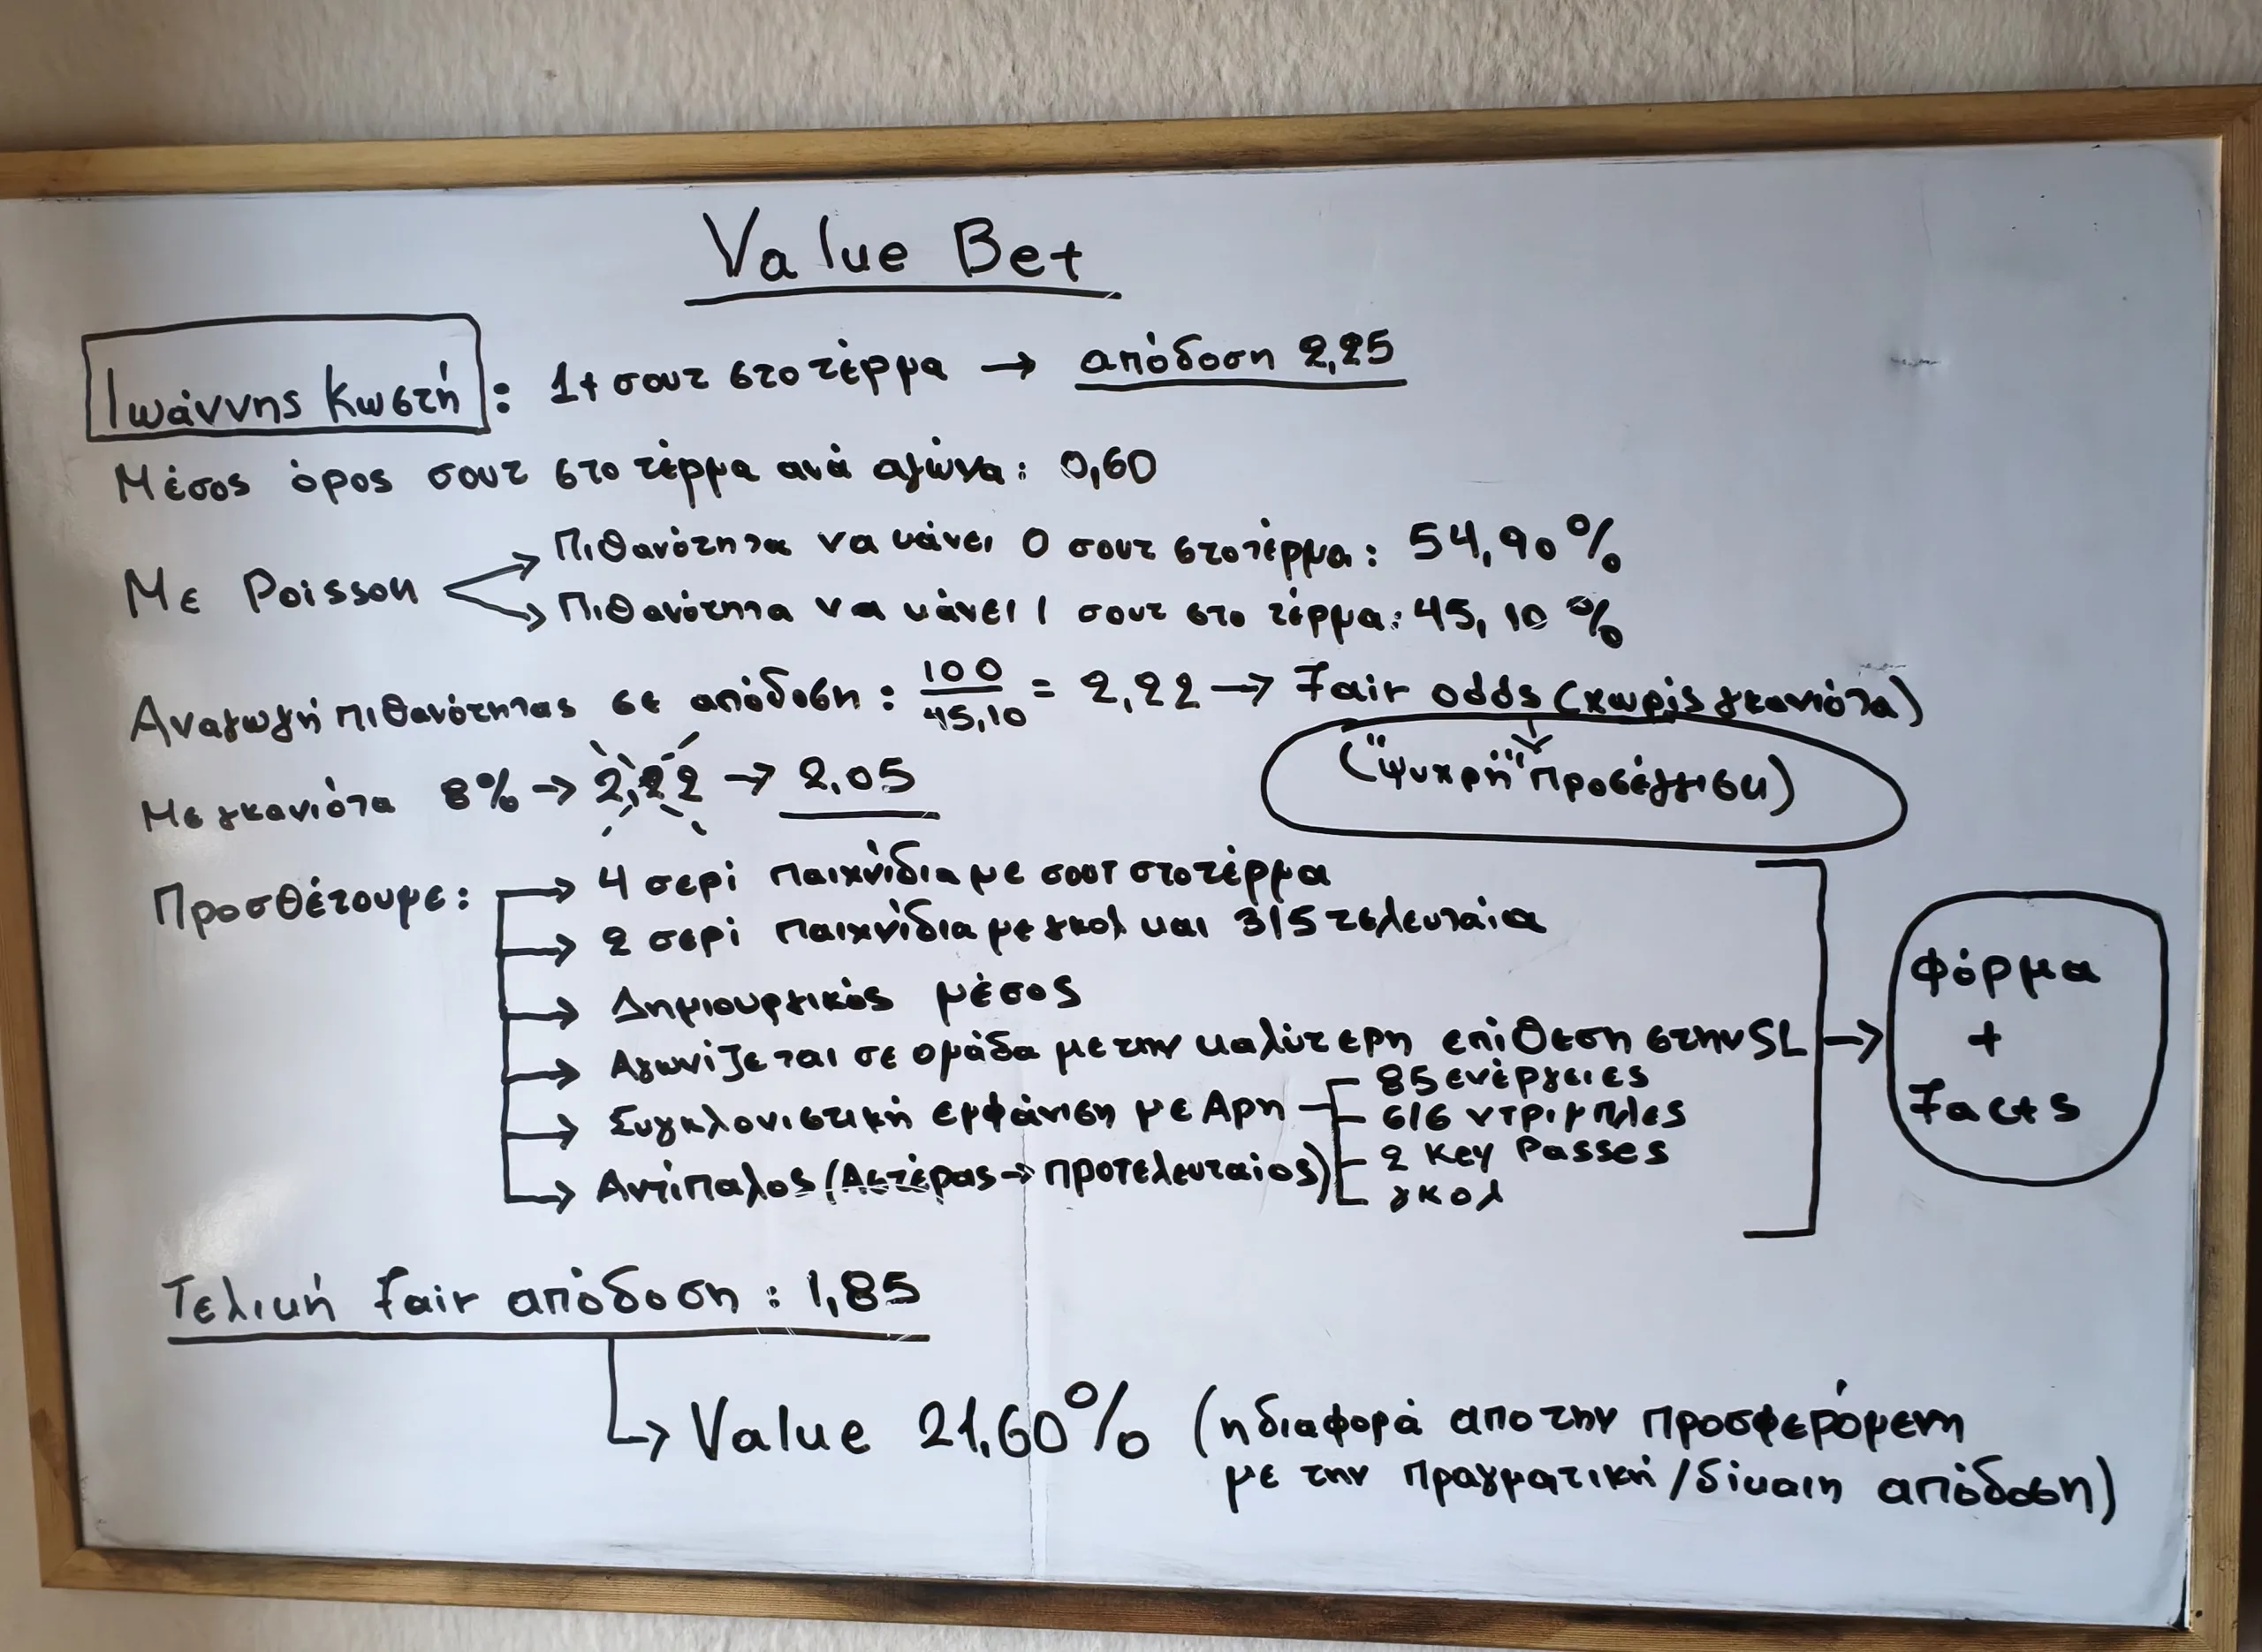 Value Bet
Ιωάννης Κωστή : 1+ σουτ στο τέρμα → απόδοση 2,25
Μέσος όρος σουτ στο τέρμα ανά αγώνα: 0,60
Πιθανότητα να κάνει 0 σουτ στο τέρμα: 54,90%
Με Poisson
Πιθανότητα να κάνει 1 σουτ στο τέρμα: 45,10%
Αναγωγή πιθανότητας σε απόδοση : 100/45,10 = 2,22 → Fair odds (χωρίς γκανιότα)
("ψυχρή" προσέγγιση)
Με γκανιότα 8% → 2,22 → 2,05
Προσθέτουμε: → 4 σερί παιχνίδια με σουτ στο τέρμα
→ 2 σερί παιχνίδια με γκολ και 3/5 τελευταία
→ Δημιουργικός μέσος
→ Αγωνίζεται σε ομάδα με την καλύτερη επίθεση στην SL
→ Συγκλονιστική εμφάνιση με Αρη
85 ενέργειες
6/6 ντριμπλες
2 Key Passes
γκολ
→ Αντίπαλος (Αστέρας → προτελευταίος)
→ Φόρμα
+
Facts
Τελική Fair απόδοση : 1,85
→ Value 21,60% (η διαφορά απο την προσφερόμενη
με την πραγματική/δίκαιη απόδοση)